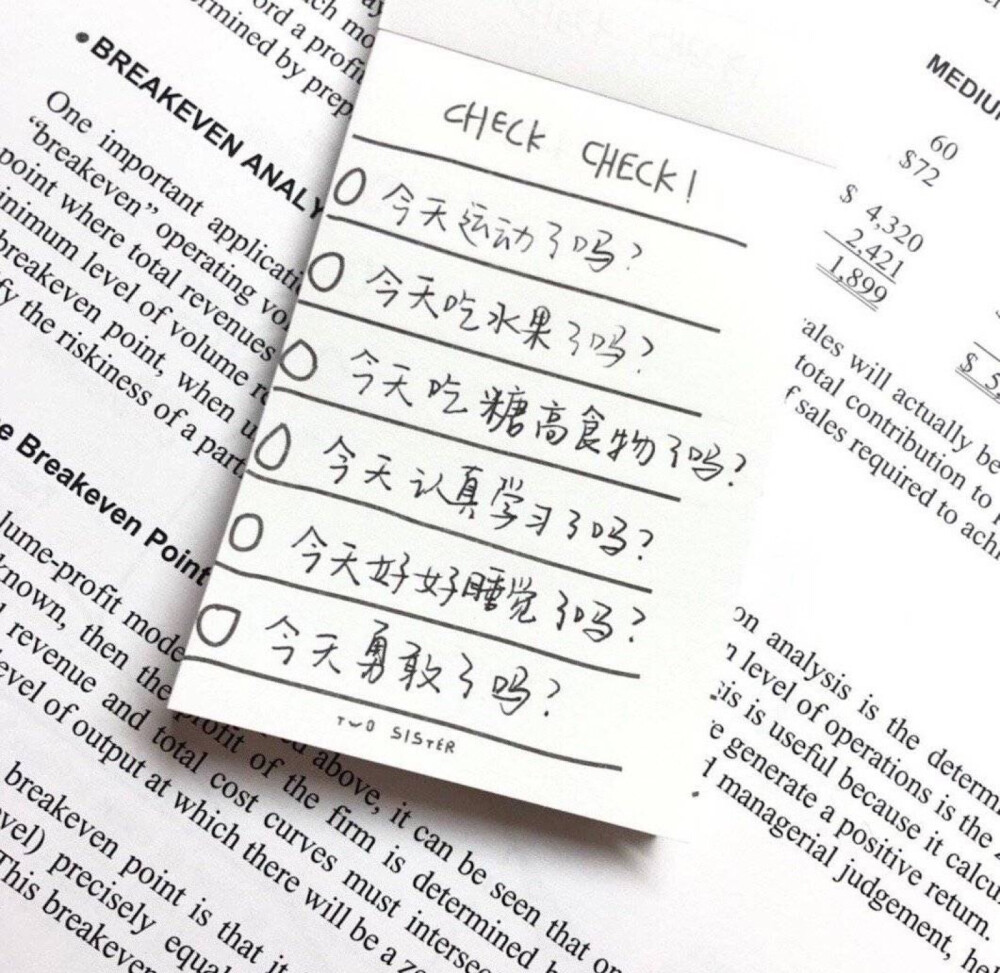 ch mo
ord a profi
rmined by prep
• BREAKEVEN ANALY
One important applicati
“breakeven” operating vo
point where total revenues
inimum level of volume re
breakeven point, when u
fy the riskiness of a part
e Breakeven Point
lume-profit mode
known, then the
l revenue and total cost curves must interse
evel of output at which there will be a ze
profit of the firm is determined b
above, it can be seen that on
breakeven point is that it
vel) precisely equal
This breakeve
CHECK CHECK!
今天运动了吗?
今天吃水果了吗?
今天吃糖高食物了吗?
今天认真学习了吗?
今天好好睡觉了吗?
今天勇敢了吗?
TWO SISTER
MEDIU
60
$72
$ 4,320
2,421
1,899
$ 5,
ales will actually be
total contribution to
f sales required to achi
on analysis is the determi
n level of operations is the
sis is useful because it calcu
re generate a positive return.
d managerial judgement, he